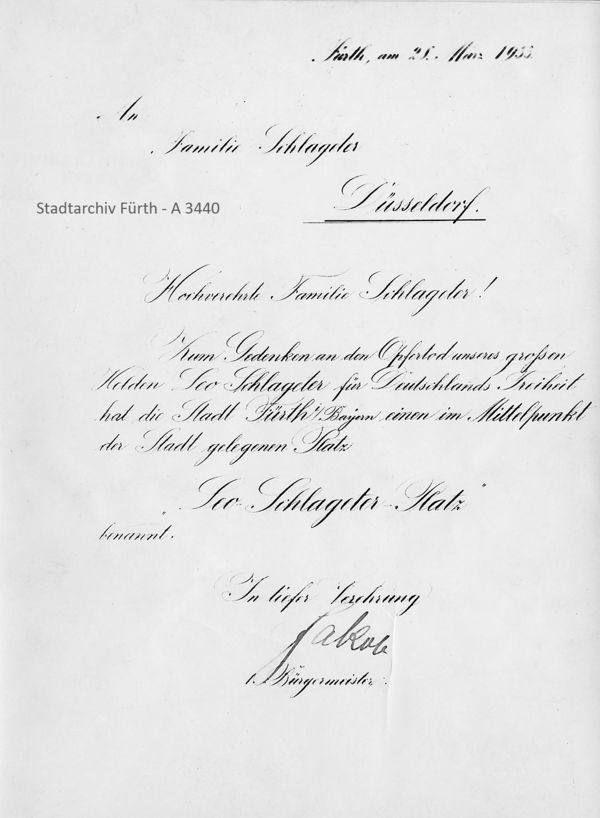 Fürth, am 28. März 1933.
An
Familie Schlageter
Stadtarchiv Fürth - A 3440
Düsseldorf.
Hochverehrte Familie Schlageter!
Zum Gedenken an den Opfertod unseres großen
Helden Leo Schlageter für Deutschlands Freiheit
hat die Stadt Fürth i/Bayern einen im Mittelpunkt
der Stadt gelegenen Platz
„Leo-Schlageter-Platz"
benannt.
In tiefer Verehrung
Jakob
1. Bürgermeister.